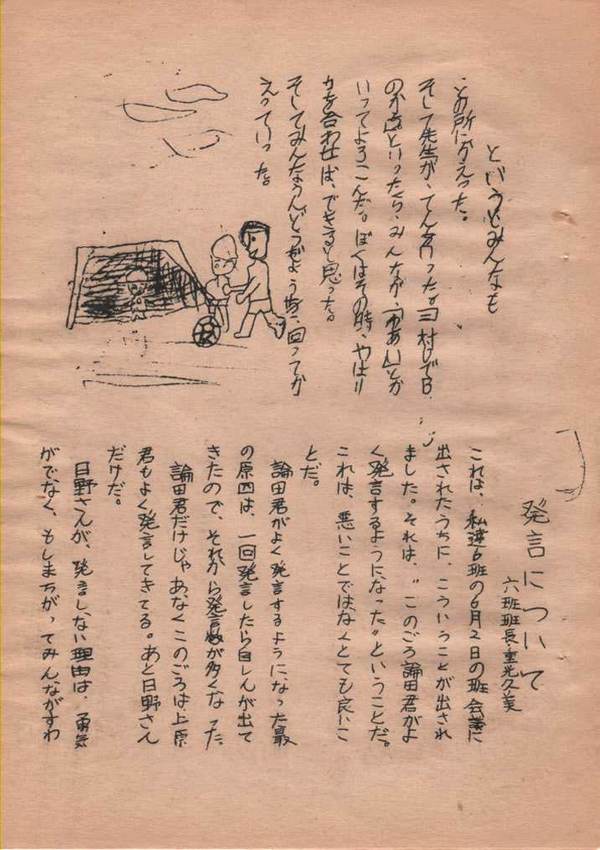 というとみんなも
との所にかえった。
そして先生が、てん
いってよろこんだ。ぼくはその時、やはり
力を合わせば、できると思った。
そしてみんなうんどうじょうを、回ってか
えっていった。
発言について
六班班長・重光久美
これは、私達6班の6月2日の班会議に
出されたうちに、こういうことが出され
ました。それは、〝このごろ論田君がよ
く発言するようになった〟ということだ。
これは、悪いことではなくとても良いこ
とだ。
論田君がよく発言するようになった最
の原因は、一回発言したら自しんが出て
きたので、それから発言数が多くなった。
論田君だけじゃあなくこのごろは上原
君もよく発言してきてる。あと日野さん
だけだ。
日野さんが、発言しない理由は、勇気
がでなく、もしまちがってみんながすわ